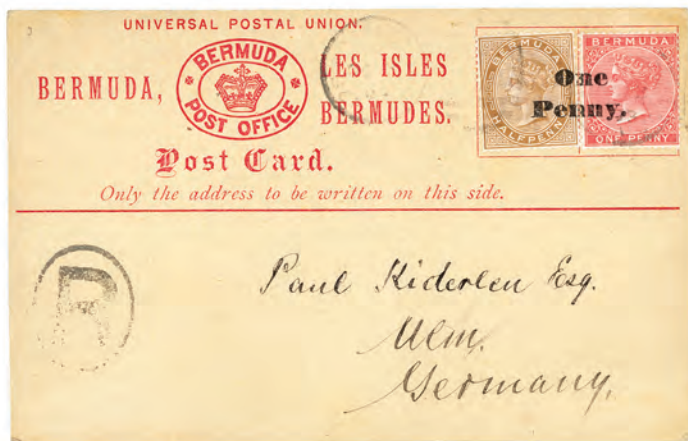 UNIVERSAL POSTAL UNION.
BERMUDA,
BERMUDA
POST OFFICE
LES ISLES
BERMUDES.
Post Card.
Only the address to be written on this side.
BERMUDA
HALFPENNY
BERMUDA
ONE PENNY
One
Penny.
R
Paul Kiderlen Esq.
Ulm.
Germany.